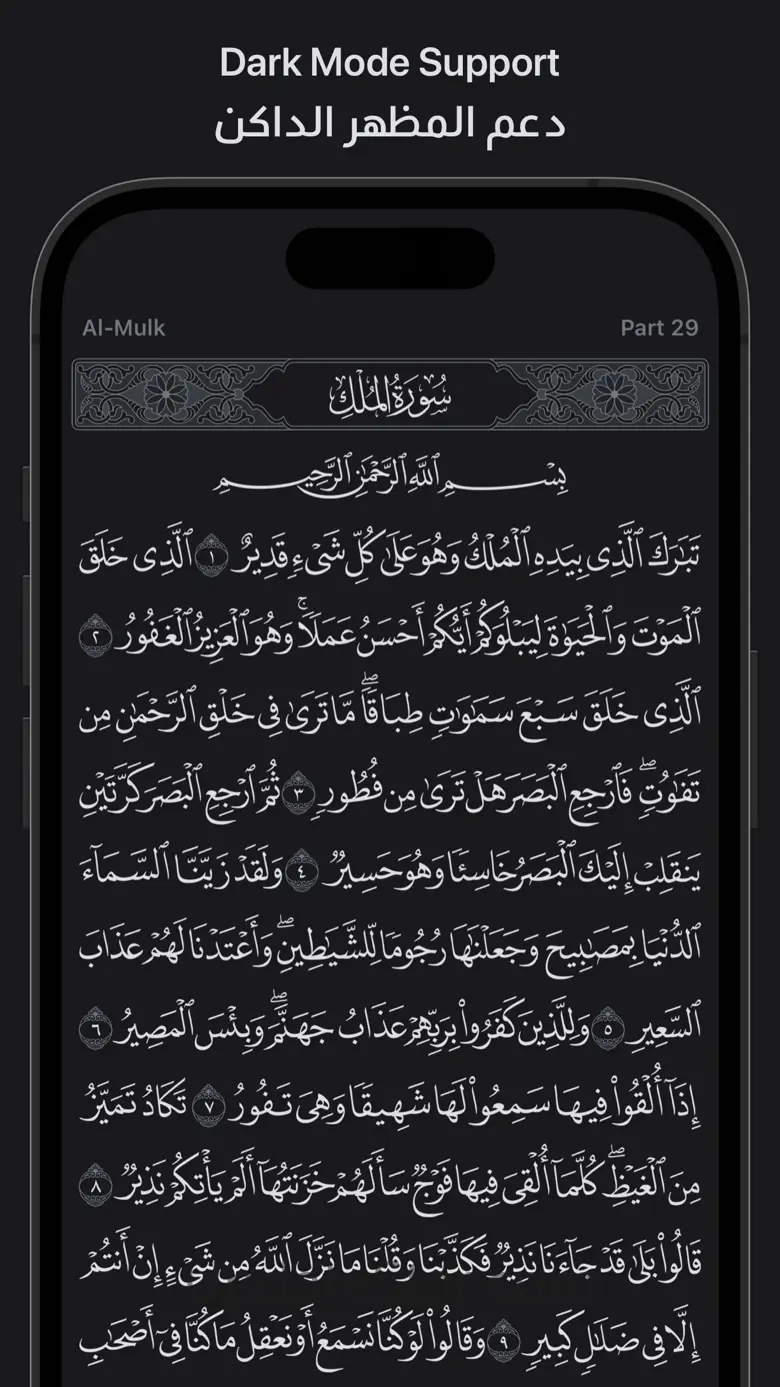 Dark Mode Support
دعم المظهر الداكن
Al-Mulk Part 29
سُورَةُ المُلْكِ
بِسْمِ ٱللَّهِ ٱلرَّحْمَٰنِ ٱلرَّحِيمِ
تَبَٰرَكَ ٱلَّذِى بِيَدِهِ ٱلْمُلْكُ وَهُوَ عَلَىٰ كُلِّ شَىْءٍ قَدِيرٌ ١ ٱلَّذِى خَلَقَ
ٱلْمَوْتَ وَٱلْحَيَوٰةَ لِيَبْلُوَكُمْ أَيُّكُمْ أَحْسَنُ عَمَلًا ۚ وَهُوَ ٱلْعَزِيزُ ٱلْغَفُورُ ٢
ٱلَّذِى خَلَقَ سَبْعَ سَمَٰوَٰتٍ طِبَاقًا ۖ مَّا تَرَىٰ فِى خَلْقِ ٱلرَّحْمَٰنِ مِن
تَفَٰوُتٍ ۖ فَٱرْجِعِ ٱلْبَصَرَ هَلْ تَرَىٰ مِن فُطُورٍ ٣ ثُمَّ ٱرْجِعِ ٱلْبَصَرَ كَرَّتَيْنِ
يَنقَلِبْ إِلَيْكَ ٱلْبَصَرُ خَاسِئًا وَهُوَ حَسِيرٌ ٤ وَلَقَدْ زَيَّنَّا ٱلسَّمَآءَ
ٱلدُّنْيَا بِمَصَٰبِيحَ وَجَعَلْنَٰهَا رُجُومًا لِّلشَّيَٰطِينِ ۖ وَأَعْتَدْنَا لَهُمْ عَذَابَ
ٱلسَّعِيرِ ٥ وَلِلَّذِينَ كَفَرُوا۟ بِرَبِّهِمْ عَذَابُ جَهَنَّمَ ۖ وَبِئْسَ ٱلْمَصِيرُ ٦
إِذَآ أُلْقُوا۟ فِيهَا سَمِعُوا۟ لَهَا شَهِيقًا وَهِىَ تَفُورُ ٧ تَكَادُ تَمَيَّزُ
مِنَ ٱلْغَيْظِ ۖ كُلَّمَآ أُلْقِىَ فِيهَا فَوْجٌ سَأَلَهُمْ خَزَنَتُهَآ أَلَمْ يَأْتِكُمْ نَذِيرٌ ٨
قَالُوا۟ بَلَىٰ قَدْ جَآءَنَا نَذِيرٌ فَكَذَّبْنَا وَقُلْنَا مَا نَزَّلَ ٱللَّهُ مِن شَىْءٍ إِنْ أَنتُمْ
إِلَّا فِى ضَلَٰلٍ كَبِيرٍ ٩ وَقَالُوا۟ لَوْ كُنَّا نَسْمَعُ أَوْ نَعْقِلُ مَا كُنَّا فِىٓ أَصْحَٰبِ